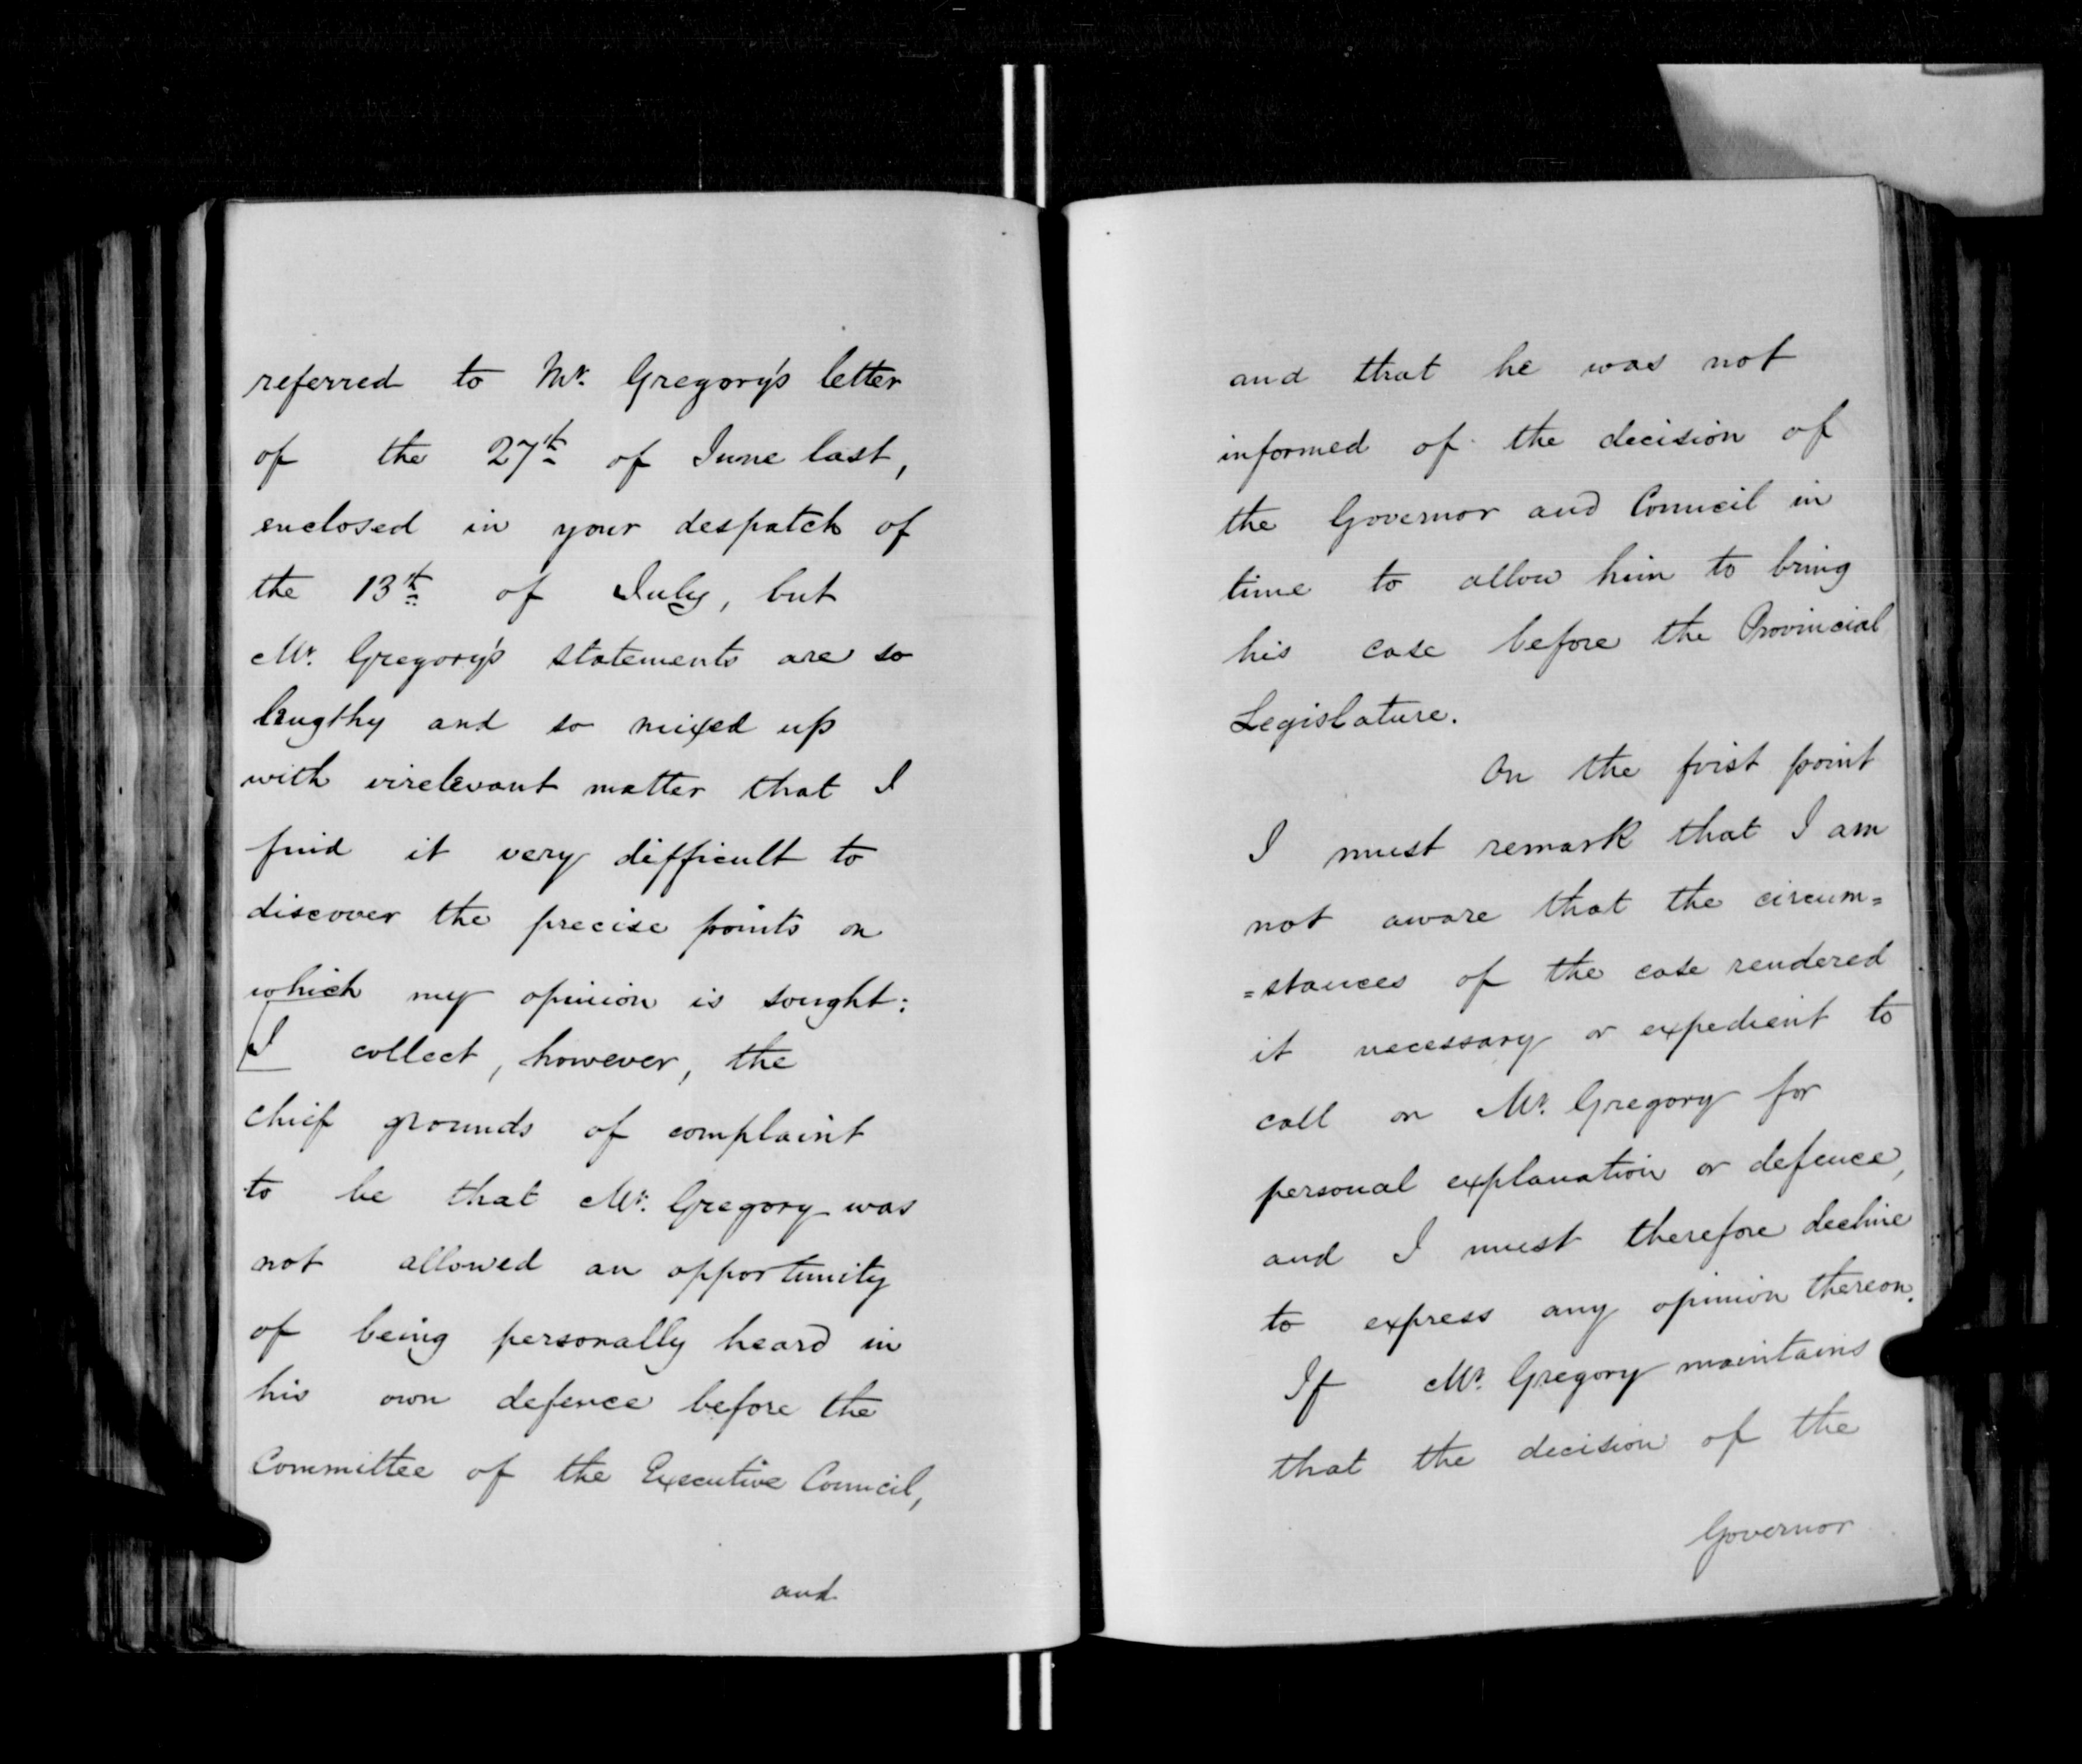 referred to Mr. Gregory's letter
of the 27th of June last,
enclosed in your despatch of
the 13th of July, but
Mr. Gregory's statements are so
lengthy and so mixed up
with irrelevant matter that I
find it very difficult to
discover the precise points on
which my opinion is sought:
I collect, however, the
chief grounds of complaint
to be that Mr. Gregory was
not allowed an opportunity
of being personally heard in
his own defence before the
Committee of the Executive Council,
and
and that he was not
informed of the decision of
the Governor and Council in
time to allow him to bring
his case before the Provincial
Legislature.
On the first point
I must remark that I am
not aware that the circum=
=stances of the case rendered
it necessary or expedient to
call on Mr. Gregory for
personal explanation or defence,
and I must therefore decline
to express any opinion thereon.
If Mr. Gregory maintains
that the decision of the
Governor